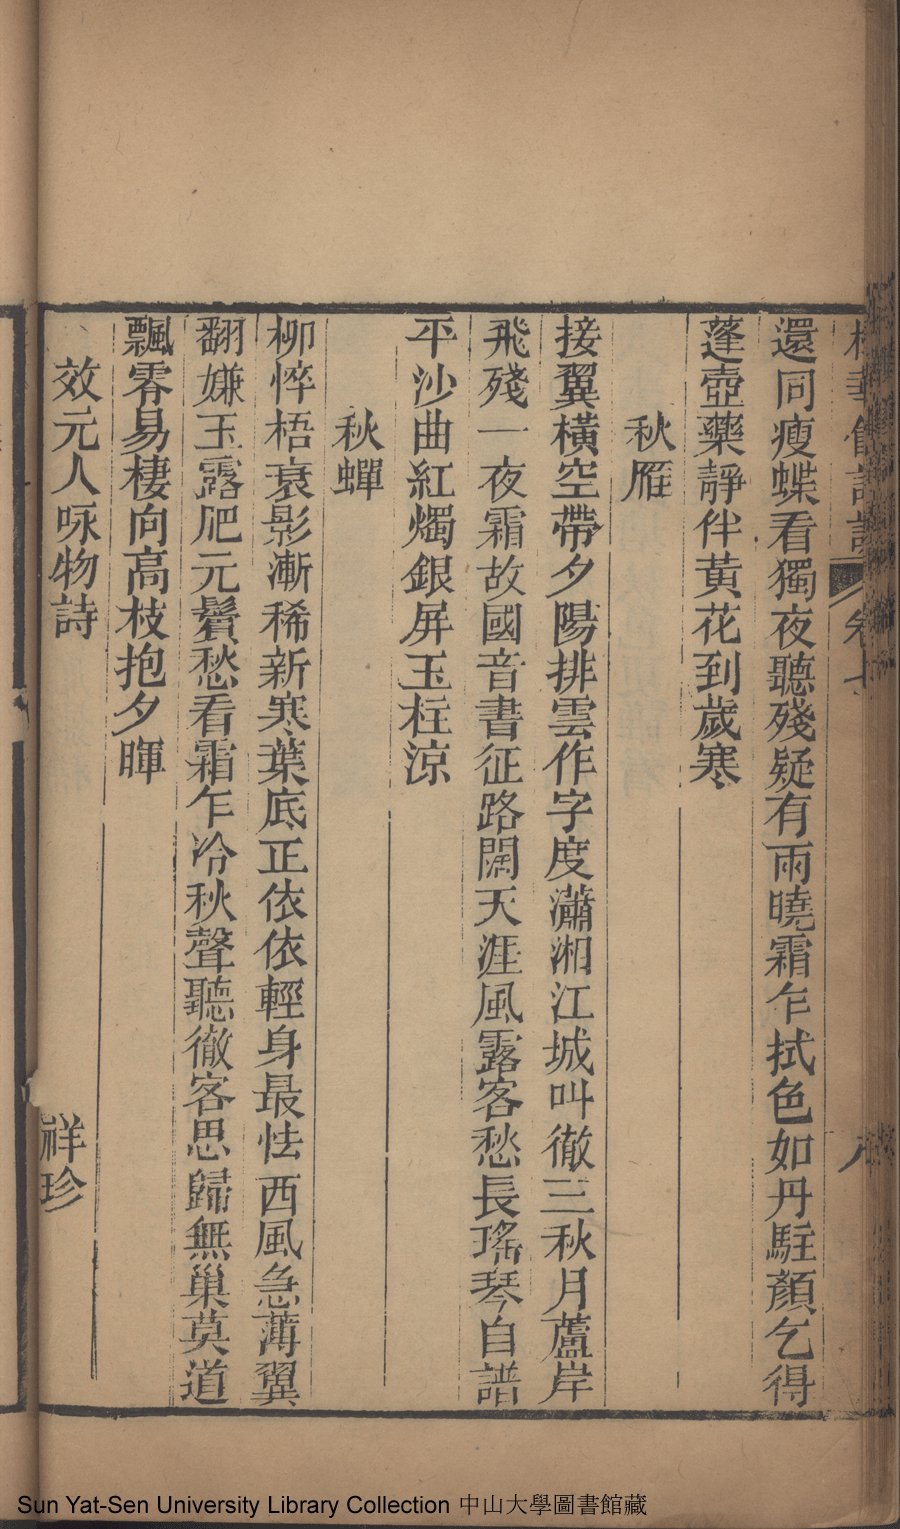 還同瘦蝶看獨夜聽殘疑有雨曉霜乍拭色如丹駐顏乞得
蓬壺藥靜伴黃花到歲寒
秋雁
接翼橫空帶夕陽排雲作字度瀟湘江城叫徹三秋月蘆岸
飛殘一夜霜故國音書征路闊天涯風露客愁長瑤琴自譜
平沙曲紅燭銀屏玉柱涼
秋蟬
柳悴梧衰影漸稀新寒葉底正依依輕身最怯西風急薄翼
翻嫌玉露肥元鬢愁看霜乍冷秋聲聽徹客思歸無巢莫道
飄零易棲向高枝抱夕暉
效元人咏物詩 祥珍
Sun Yat-Sen University Library Collection 中山大學圖書館藏